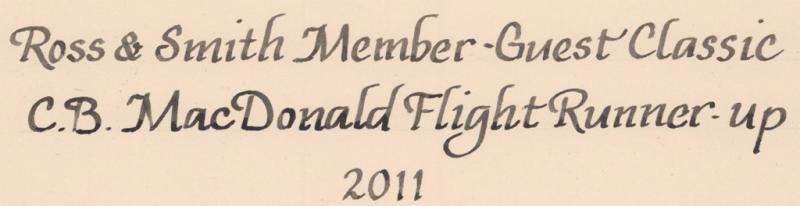 Ross & Smith Member-Guest Classic
C.B. MacDonald Flight Runner-up
2011